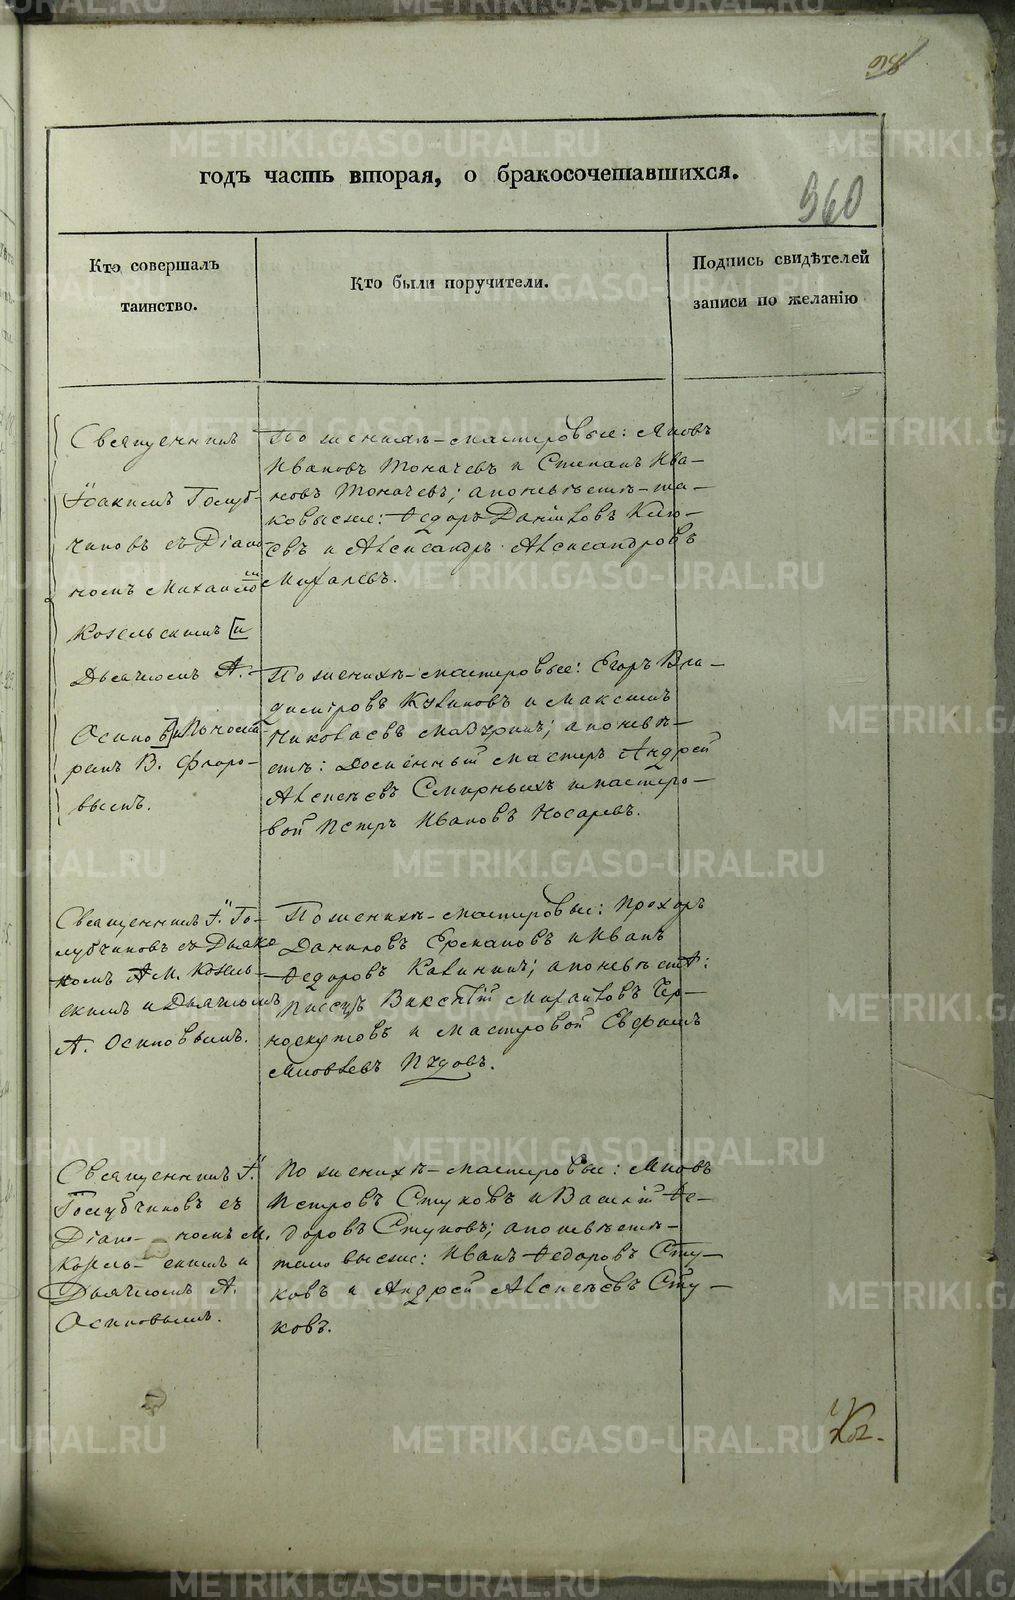 98
годъ часть вторая, о бракосочетавшихся.
360
Кто совершалъ
таинство.
Кто были поручители.
Подпись свидѣтелей
записи по желанію
Священникъ
Іоакимъ Голуб-
чиковъ съ Діако-
номъ Михаиломъ
Козельскимъ [и
Дьячкомъ А.
Осипов] и Понома-
ремъ В. Флоро-
вымъ.
По женихѣ-мастеровые: Яковъ
Ивановъ Толмачевъ и Степанъ Ива-
новъ Толмачевъ; а по невѣстѣ-та-
ковыеже: Ѳедоръ Даніиловъ
и Александръ Александровъ
Михалевъ.
По женихѣ-мастеровые: Егоръ Вла-
диміровъ Куликовъ и Максимъ
Николаевъ Мазуринъ; а по невѣ-
стѣ: Доменный мастеръ Андрей
Алексѣевъ Смирныхъ и мастеро-
вой Петръ Ивановъ Носаревъ.
Священникъ Г. Го-
лубчиковъ съ Дьяко
номъ М. Козель-
скимъ и Дьячкомъ
А. Осиповымъ.
По женихѣ-мастеровые: Прохоръ
Даниловъ Ермаковъ и Иванъ
Ѳедоровъ Калининъ; а по невѣстѣ:
Писецъ Викентій Михайловъ Чер-
носкутовъ и мастеровой Северинъ
Яковлевъ Пудовъ.
Священникъ Г.
Голубчиковъ съ
Діако- номъ М.
Козель- скимъ и
Дьячкомъ А.
Осиповымъ.
По женихѣ-мастеровые: Яковъ
Петровъ Стуковъ и Василій Ѳе-
доровъ Стуковъ; а по невѣстѣ-
таковыеже: Иванъ Ѳедоровъ Сту-
ковъ и Андрей Алексѣевъ Сту-
ковъ.